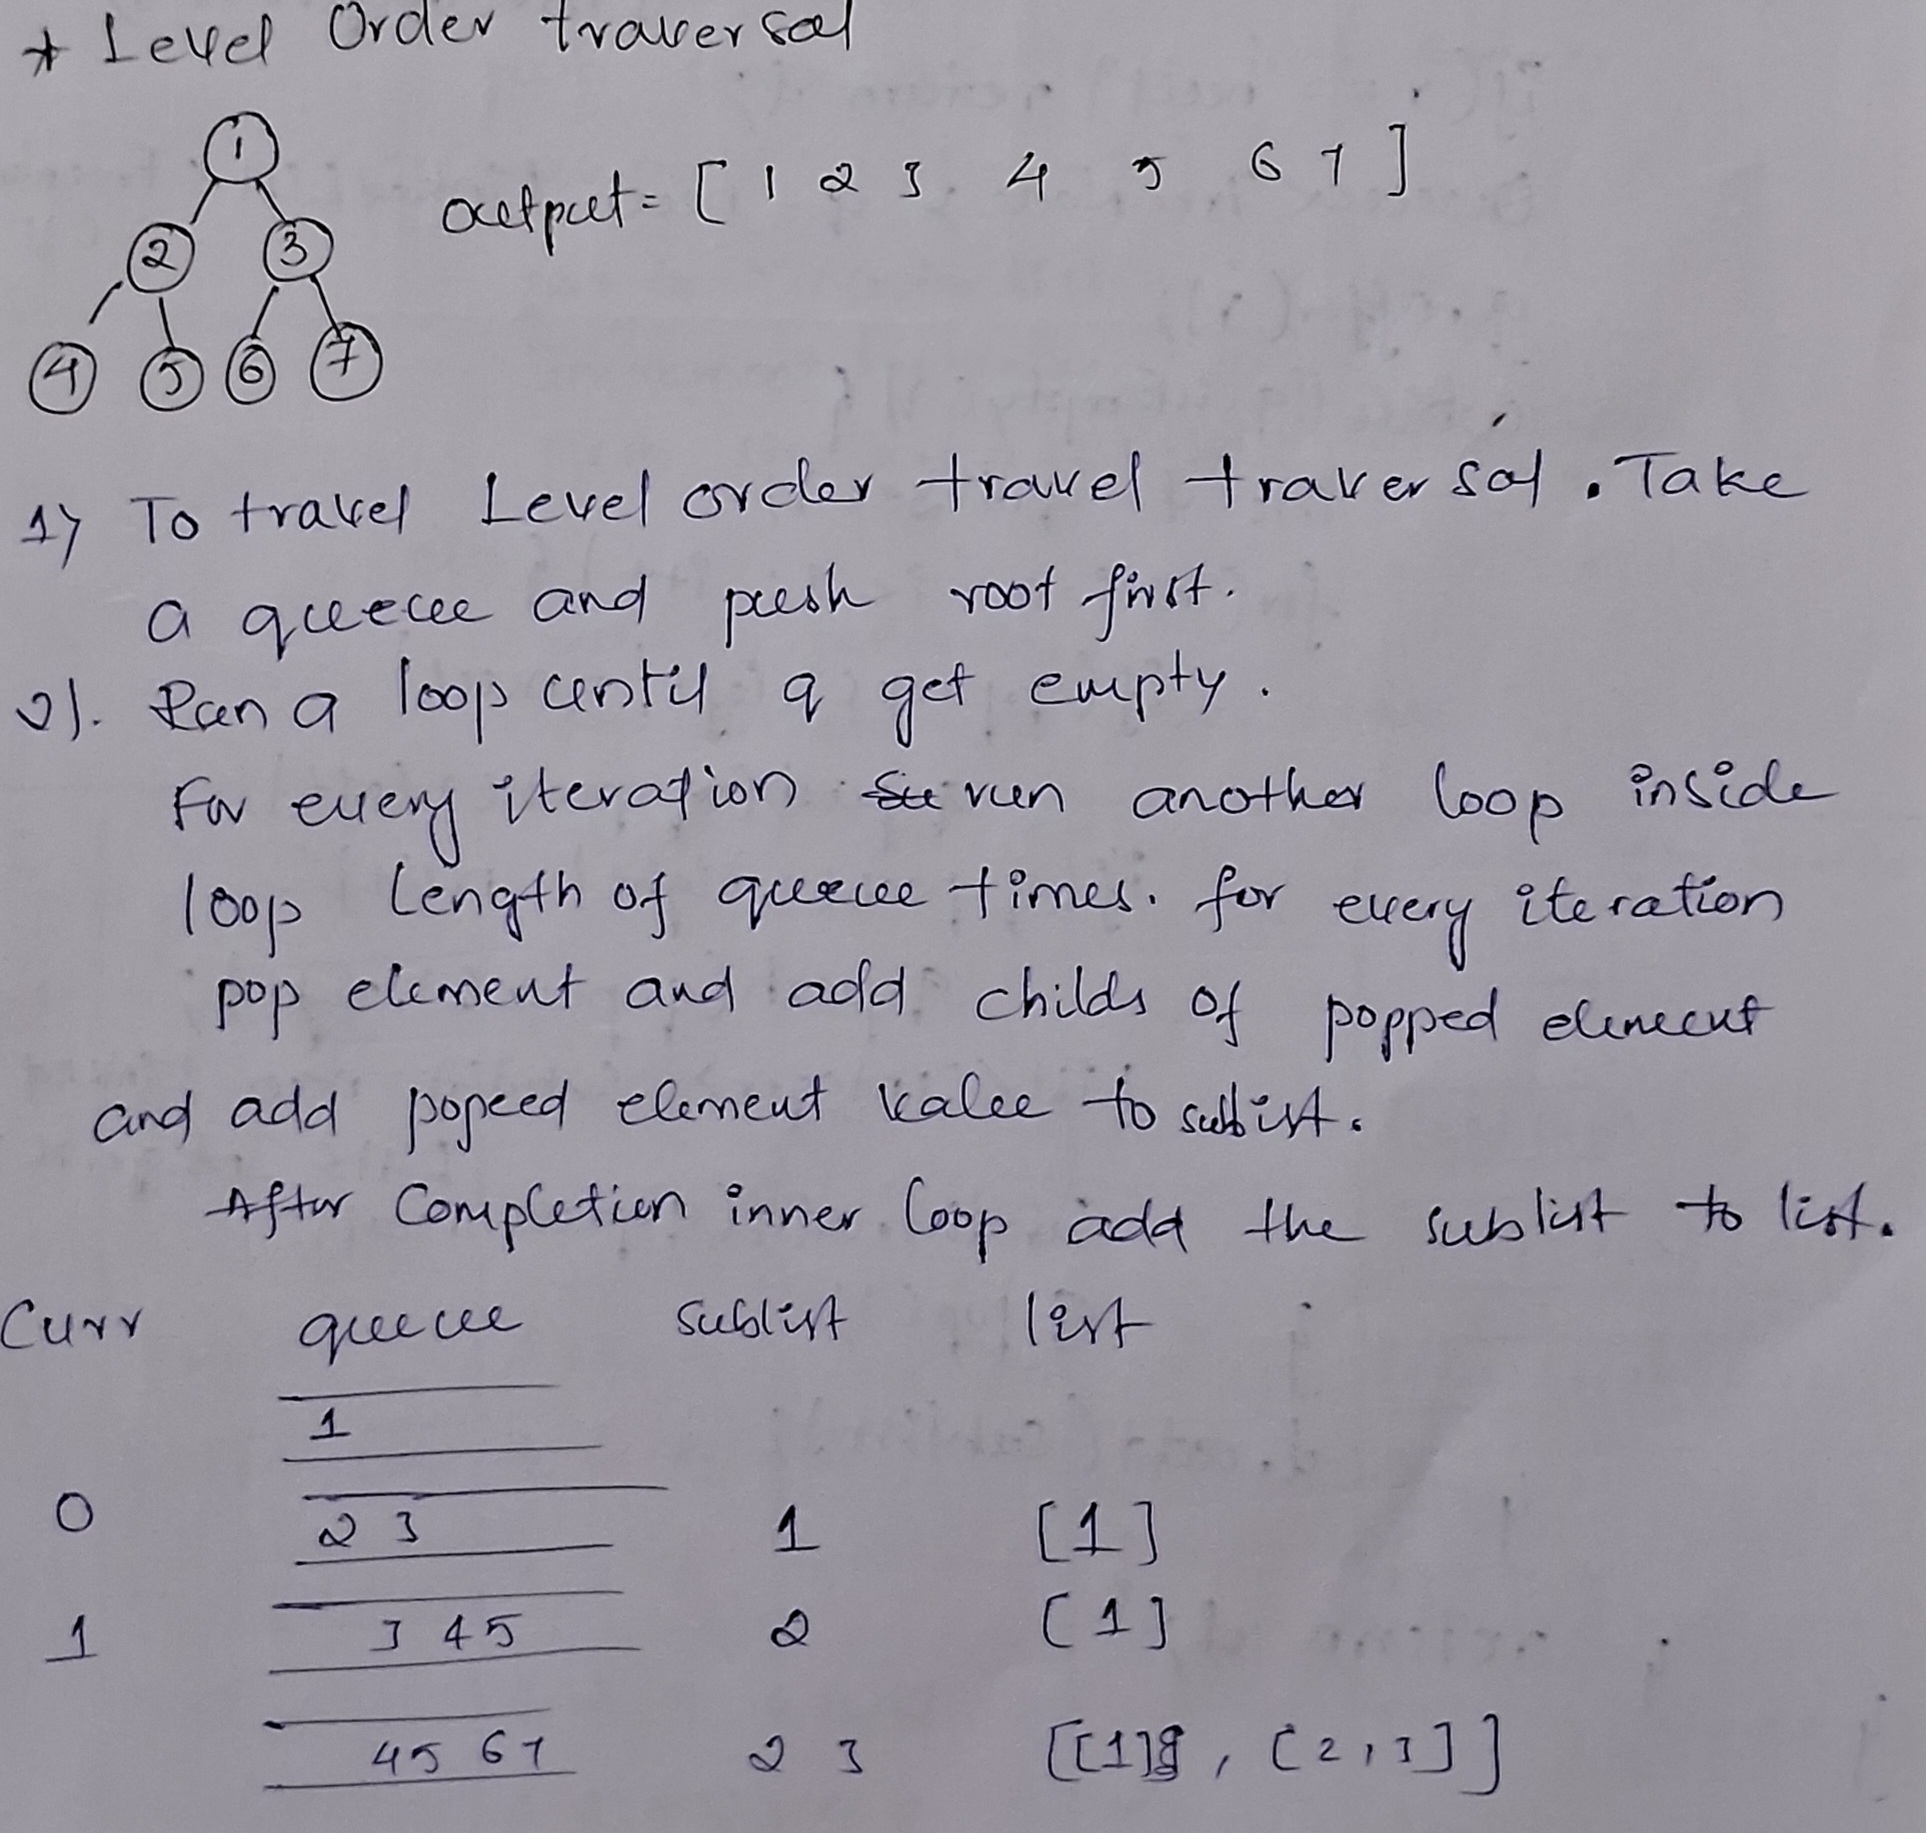 * Level Order traversal
1
output = [ 1 2 3 4 5 6 7 ]
2 3
4 5 6 7
1) To travel Level order travel traversal. Take
a queue and push root first.
2). Run a loop until q get empty.
For every iteration run another loop inside
loop length of queue times. for every iteration
pop element and add childs of popped element
and add popeed element value to sublist.
After Completion inner loop add the sublist to list.
Curr queue sublist list
1
0 2 3 1 [1]
1 3 4 5 2 [1]
4 5 6 7 2 3 [[1], [2,3]]